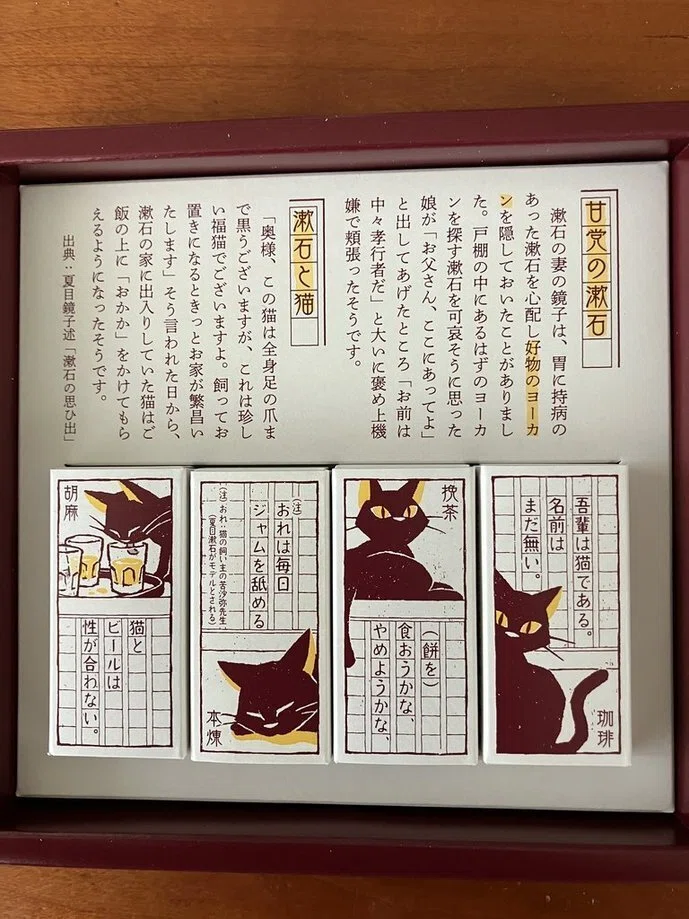 甘党の漱石
漱石の妻の鏡子は、胃に持病の
あった漱石を心配し好物のヨーカ
ンを隠しておいたことがありまし
た。戸棚の中にあるはずのヨーカ
ンを探す漱石を可哀そうに思った
娘が「お父さん、ここにあってよ」
と出してあげたところ「お前は
中々孝行者だ」と大いに褒め上機
嫌で頬張ったそうです。
漱石と猫
「奥様、この猫は全身足の爪ま
で黒うございますが、これは珍し
い福猫でございますよ。飼ってお
置きになるときっとお家が繁昌い
たします」そう言われた日から、
漱石の家に出入りしていた猫はご
飯の上に「おかか」をかけてもら
えるようになったそうです。
出典:夏目鏡子述「漱石の思ひ出」
吾輩は猫である。
名前は
まだ無い。
珈琲
挽茶
(餅を)
食おうかな、
やめようかな、
(注)
おれは毎日
ジャムを舐める
(注)おれ:猫の飼い主の苦沙弥先生
(夏目漱石がモデルとされる)
本煉
胡麻
猫と
ビールは
性が合わない。